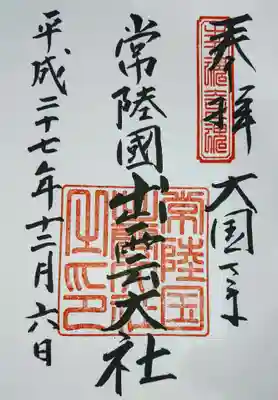 奉拝
大国
常陸國出雲大社
平成二十七年十二月六日
常陸国
出雲大社
之印